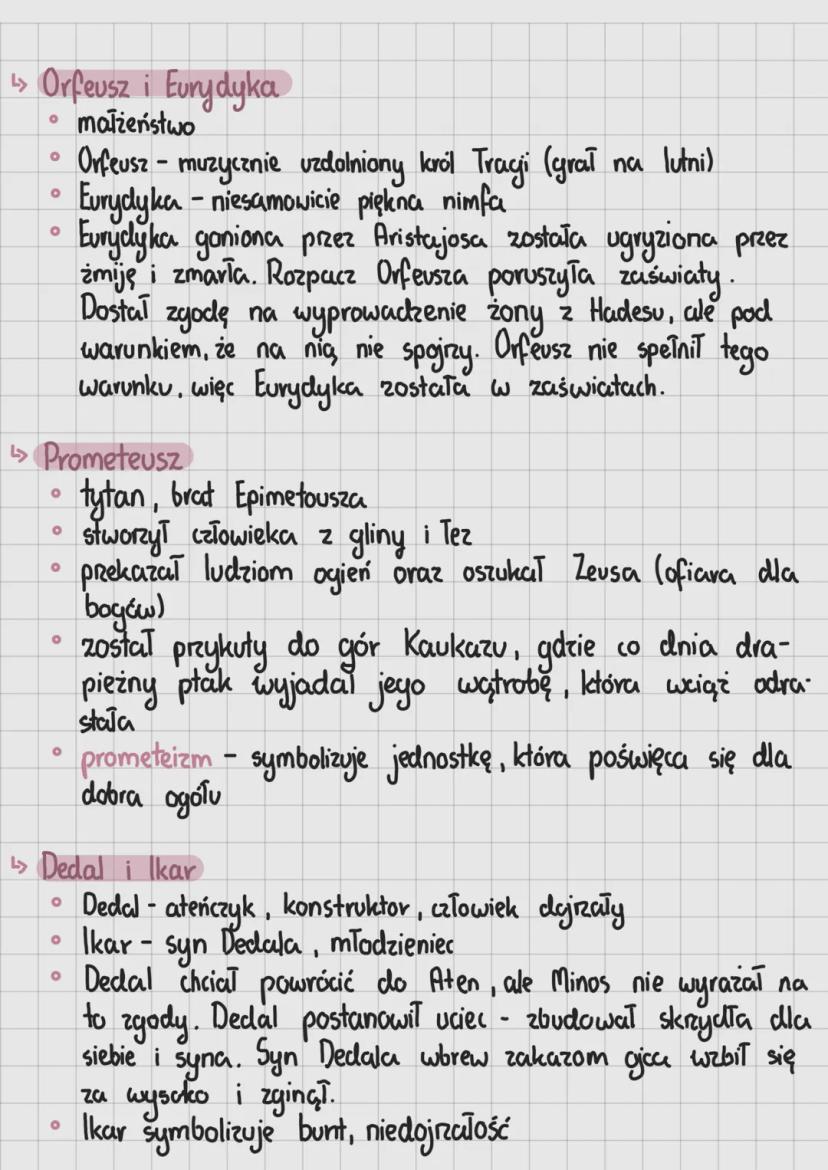 ↳ Orfeusz i Eurydyka
° małżeństwo
° Orfeusz - muzycznie uzdolniony król Tracji (grał na lutni)
° Eurydyka - niesamowicie piękna nimfa
° Eurydyka goniona przez Aristajosa została ugryziona przez
żmiję i zmarła. Rozpacz Orfeusza poruszyła zaświaty.
Dostał zgodę na wyprowadzenie żony z Hadesu, ale pod
warunkiem, że na nią nie spojrzy. Orfeusz nie spełnił tego
warunku, więc Eurydyka została w zaświatach.
↳ Prometeusz
° tytan, brat Epimetousza
° stworzył człowieka z gliny i łez
° przekazał ludziom ogień oraz oszukał Zeusa (ofiara dla
bogów)
° został przykuty do gór Kaukazu, gdzie co dnia dra-
pieżny ptak wyjadał jego wątrobę, która wciąż odra-
stała
° prometeizm - symbolizuje jednostkę, która poświęca się dla
dobra ogółu
↳ Dedal i Ikar
° Dedal - ateńczyk, konstruktor, człowiek dojrzały
° Ikar - syn Dedala, młodzieniec
° Dedal chciał powrócić do Aten, ale Minos nie wyrażał na
to zgody. Dedal postanowił uciec - zbudował skrzydła dla
siebie i syna. Syn Dedala wbrew zakazom ojca wzbił się
za wysoko i zginął.
° Ikar symbolizuje bunt, niedojrzałość